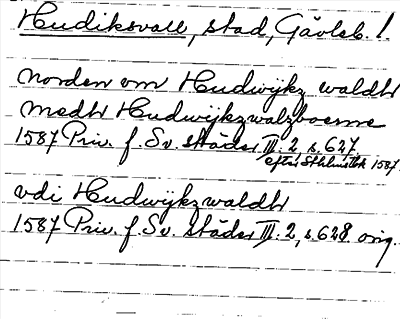 Hudiksvall, stad, Gävleb. l.
norden om Hudwijkz waldhr
medhr Hudwijkzwalzboerne
1587 Priv. f. Sv. städer III. 2, s. 627.
efter Sthlmstbk 1587.
vdi Hudwijkzwaldhr
1587 Priv. f. Sv. städer III. 2, s. 628 orig.